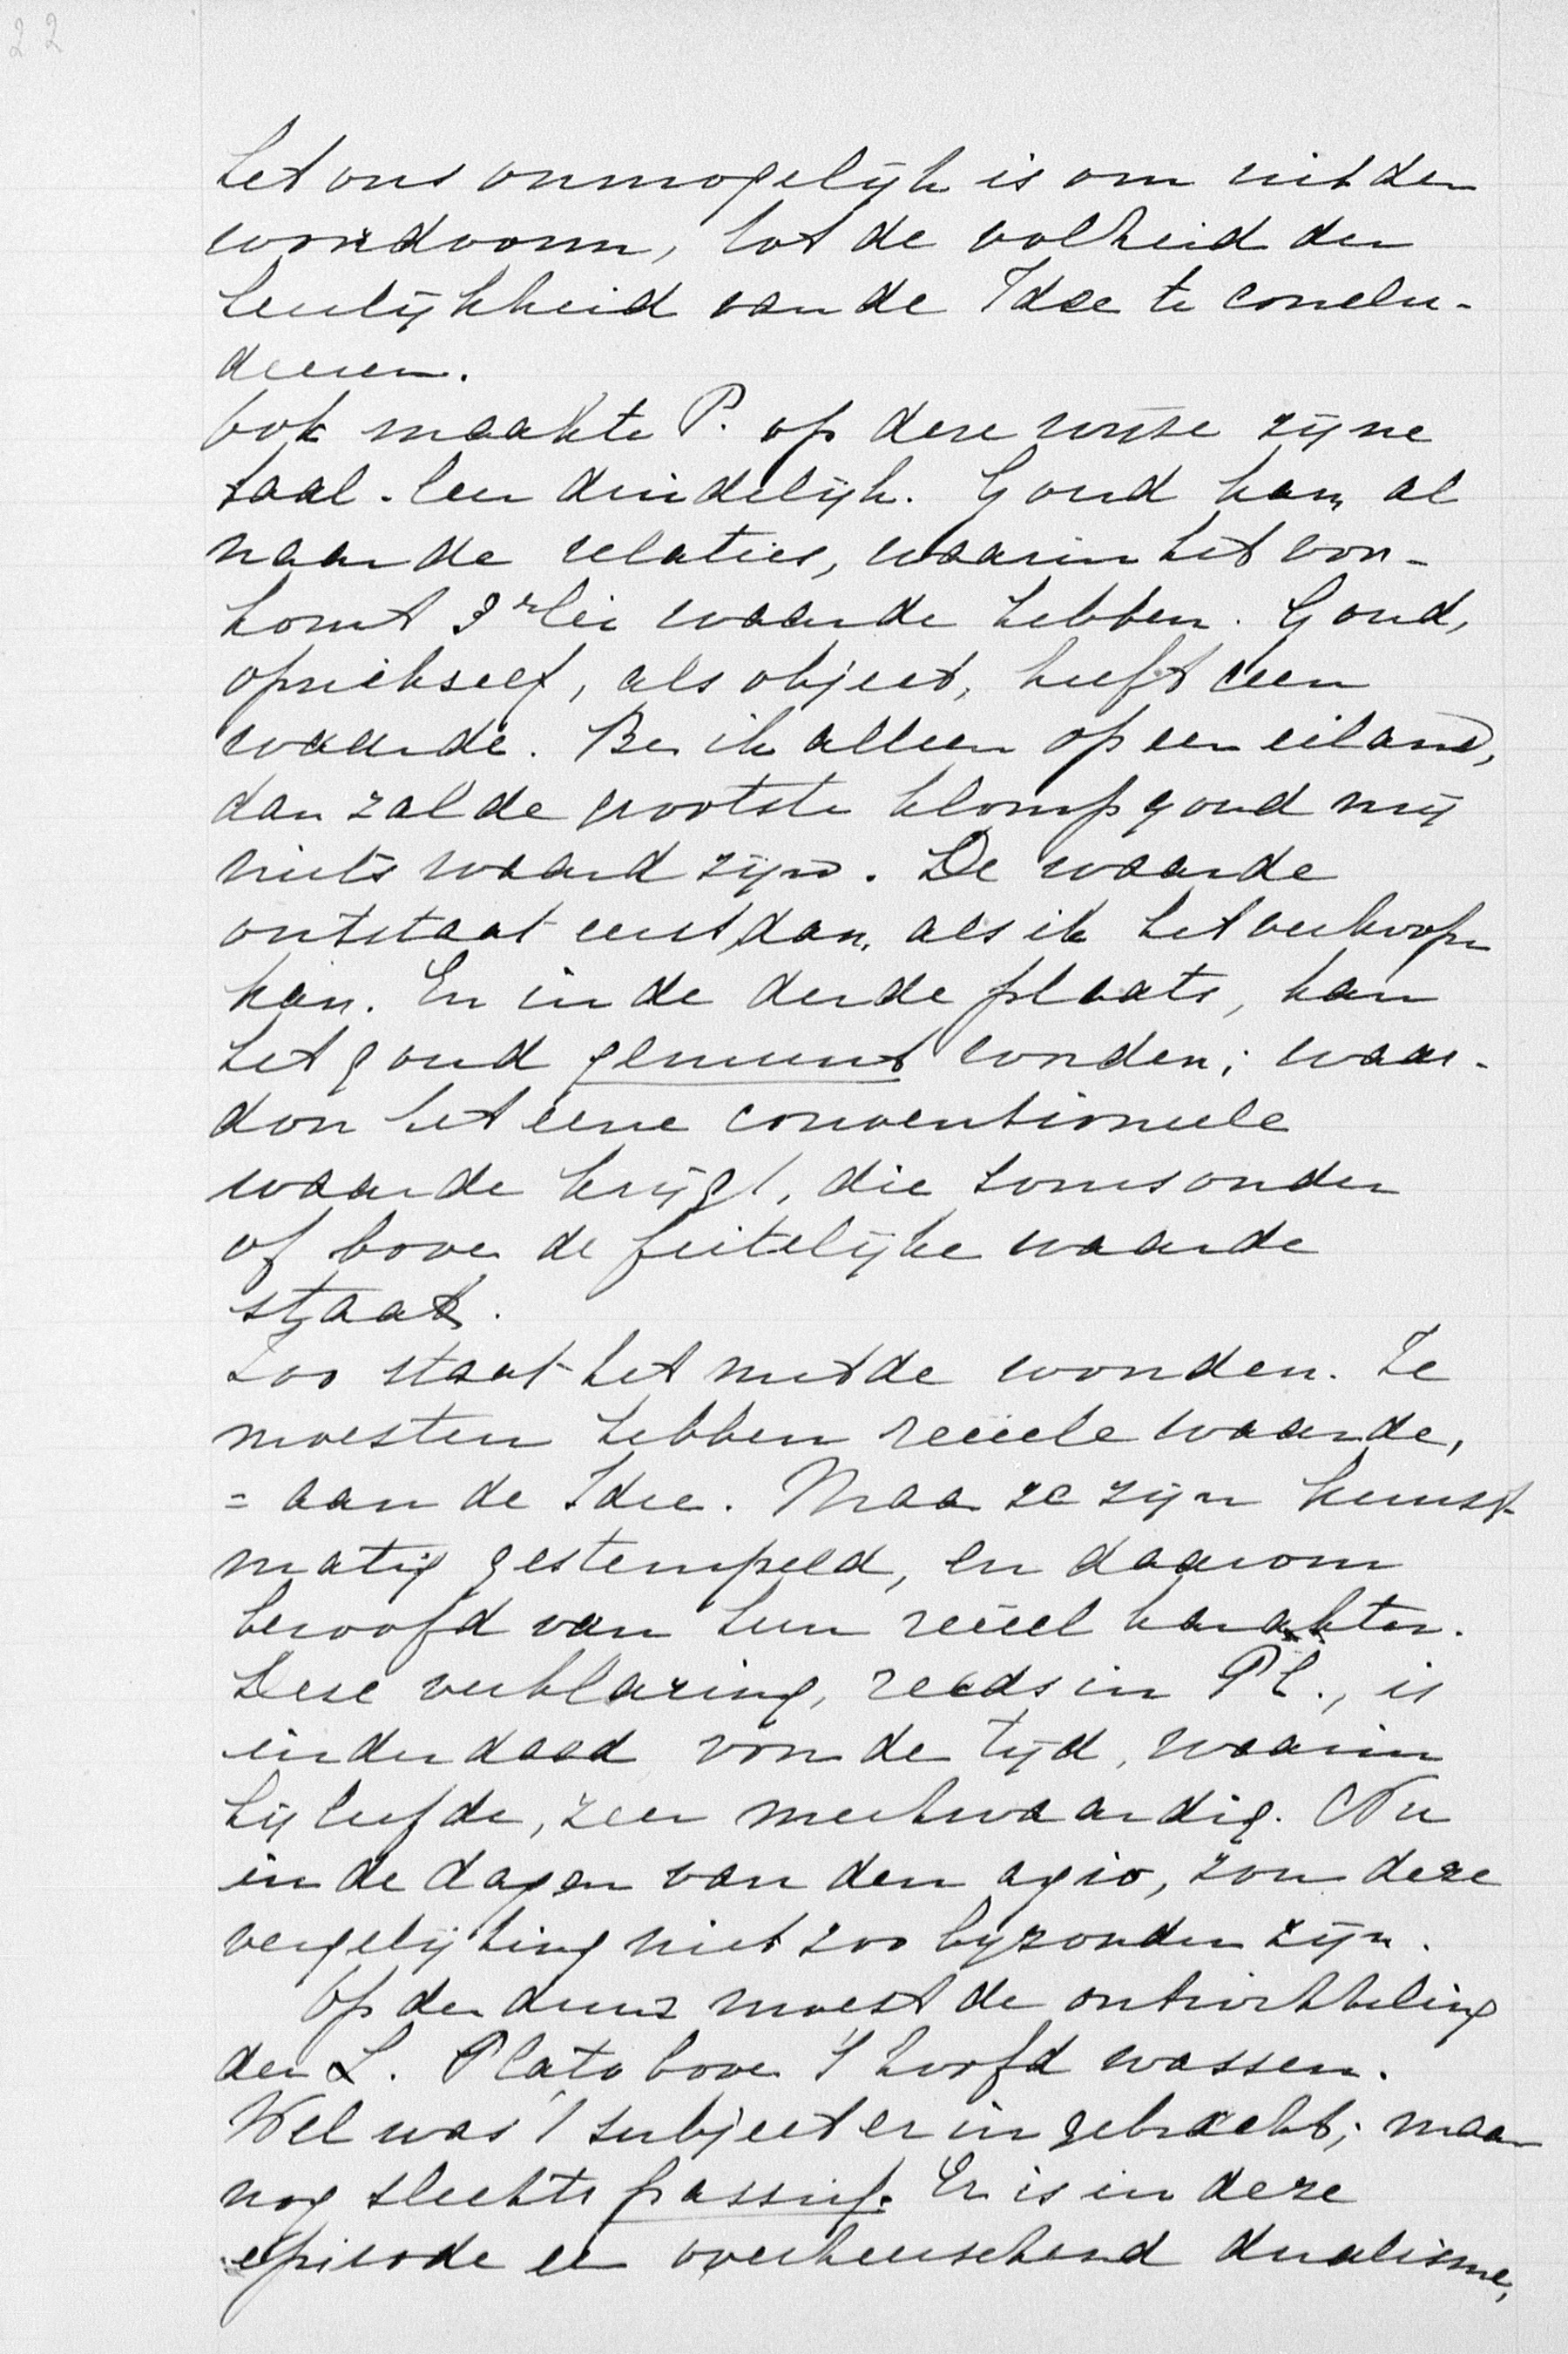 22
het ons onmogelijk is om uit den
woordvorm, tot de volheid der
heerlijkheid van de Idee te conclu-
deeren.
Ook maakte P. op deze wijze zijne
taal-leer duidelijk. Goud kan, al
naar de relaties, waarin het voor-
komt 3erlei waarde hebben. Goud,
opzichzelf, als object, heeft eene
waarde. Ben ik alleen op een eiland,
dan zal de grootste klomp goud mij
niets waard zijn. De waarde
ontstaat eerst dan, als ik het verkoopen
kan. En in de derde plaats, kan
het goud gemunt worden; waar-
door het eene conventioneele
waarde krijgt, die soms onder
of boven de feitelijke waarde
staat.
Zoo staat het met de woorden. Ze
moesten hebben reëele waarde,
= aan de Idee. Maar ze zijn kunst
matig gestempeld, en daarom
beroofd van hun reëel karakter.
Deze verklaring, reeds in Pl., is
inderdaad voor de tijd, waarin
hij leefde, zeer merkwaardig. Nu
in de dagen van den agio, zou deze
vergelijking niet zoo bijzonder zijn.
Op den duur moest de ontwikkeling
der L. Plato boven 't hoofd wassen.
Wel was 't subject er in gebracht; maar
nog slechts passief. Er is in deze
episode een overheerschend dualisme,